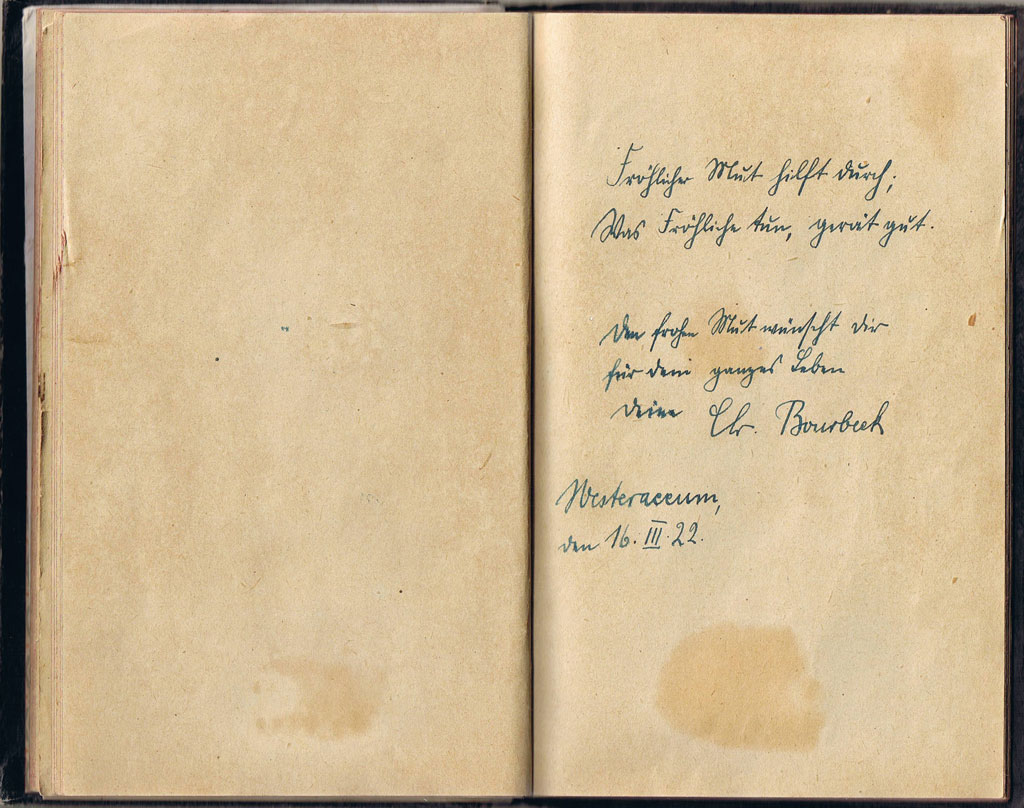 Fröhlicher Mut hilft durch;
Was Fröhliche tun, gerät gut.
Den frohen Mut wünscht dir
für dein ganzes Leben
deine Chr. Bourbeck
Westeraccum,
den 16. III. 22.